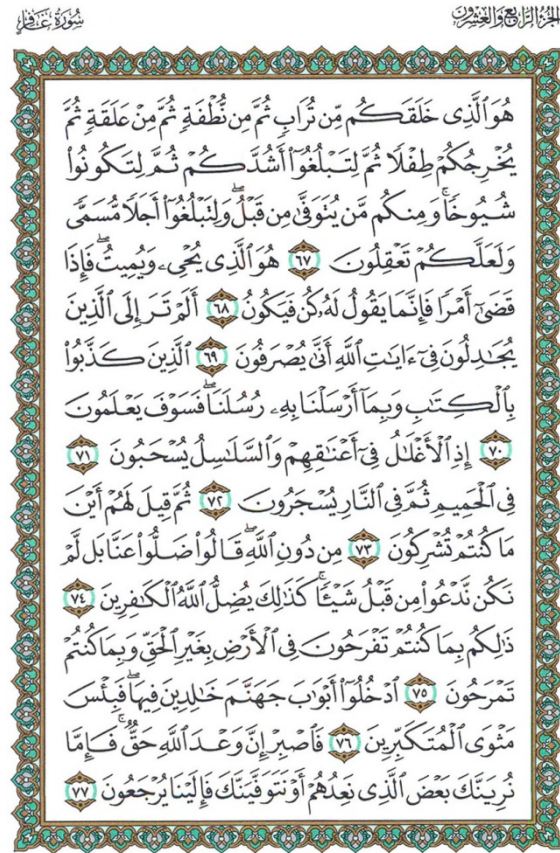 الجزء الرابع والعشرون
سورة غافر
هُوَ ٱلَّذِى خَلَقَكُم مِّن تُرَابٍ ثُمَّ مِن نُّطْفَةٍ ثُمَّ مِنْ عَلَقَةٍ ثُمَّ
يُخْرِجُكُمْ طِفْلًا ثُمَّ لِتَبْلُغُوٓا۟ أَشُدَّكُمْ ثُمَّ لِتَكُونُوا۟
شُيُوخًا ۚ وَمِنكُم مَّن يُتَوَفَّىٰ مِن قَبْلُ ۖ وَلِتَبْلُغُوٓا۟ أَجَلًا مُّسَمًّى
وَلَعَلَّكُمْ تَعْقِلُونَ ٦٧ هُوَ ٱلَّذِى يُحْىِۦ وَيُمِيتُ ۖ فَإِذَا
قَضَىٰٓ أَمْرًا فَإِنَّمَا يَقُولُ لَهُۥ كُن فَيَكُونُ ٦٨ أَلَمْ تَرَ إِلَى ٱلَّذِينَ
يُجَٰدِلُونَ فِىٓ ءَايَٰتِ ٱللَّهِ أَنَّىٰ يُصْرَفُونَ ٦٩ ٱلَّذِينَ كَذَّبُوا۟
بِٱلْكِتَٰبِ وَبِمَآ أَرْسَلْنَا بِهِۦ رُسُلَنَا ۖ فَسَوْفَ يَعْلَمُونَ
٧٠ إِذِ ٱلْأَغْلَٰلُ فِىٓ أَعْنَٰقِهِمْ وَٱلسَّلَٰسِلُ يُسْحَبُونَ ٧١
فِى ٱلْحَمِيمِ ثُمَّ فِى ٱلنَّارِ يُسْجَرُونَ ٧٢ ثُمَّ قِيلَ لَهُمْ أَيْنَ
مَا كُنتُمْ تُشْرِكُونَ ٧٣ مِن دُونِ ٱللَّهِ ۖ قَالُوا۟ ضَلُّوا۟ عَنَّا بَل لَّمْ
نَكُن نَّدْعُوا۟ مِن قَبْلُ شَيْـًٔا ۚ كَذَٰلِكَ يُضِلُّ ٱللَّهُ ٱلْكَٰفِرِينَ ٧٤
ذَٰلِكُم بِمَا كُنتُمْ تَفْرَحُونَ فِى ٱلْأَرْضِ بِغَيْرِ ٱلْحَقِّ وَبِمَا كُنتُمْ
تَمْرَحُونَ ٧٥ ٱدْخُلُوٓا۟ أَبْوَٰبَ جَهَنَّمَ خَٰلِدِينَ فِيهَا ۖ فَبِئْسَ
مَثْوَى ٱلْمُتَكَبِّرِينَ ٧٦ فَٱصْبِرْ إِنَّ وَعْدَ ٱللَّهِ حَقٌّ ۚ فَإِمَّا
نُرِيَنَّكَ بَعْضَ ٱلَّذِى نَعِدُهُمْ أَوْ نَتَوَفَّيَنَّكَ فَإِلَيْنَا يُرْجَعُونَ ٧٧